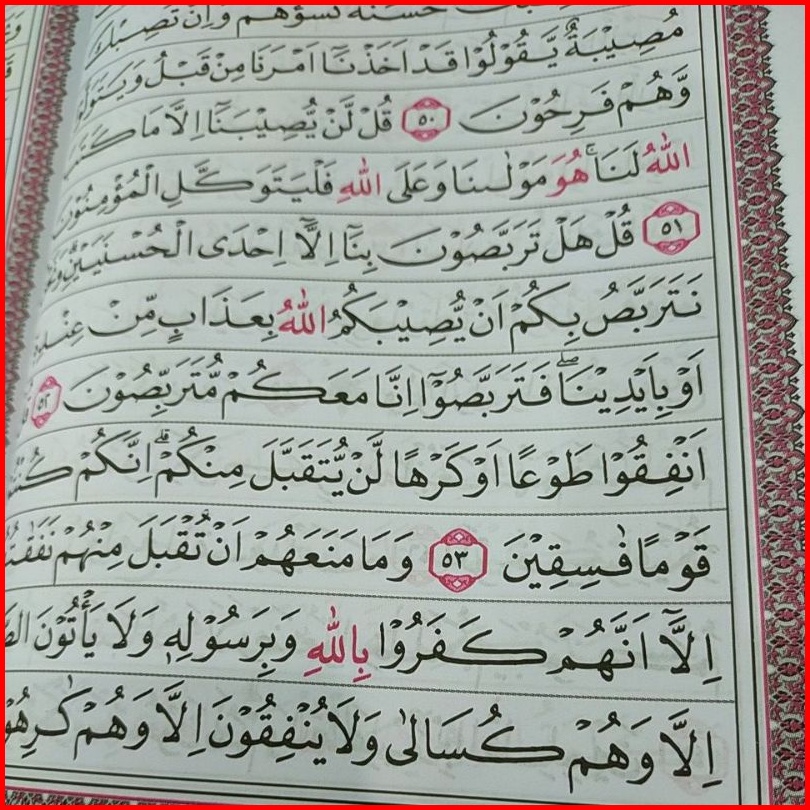 حَسَنَةٌ تَسُؤْهُمْ وَاِنْ تُصِبْكَ
مُصِيْبَةٌ يَّقُوْلُوْا قَدْ اَخَذْنَآ اَمْرَنَا مِنْ قَبْلُ وَيَتَوَلَّوْا
وَّهُمْ فَرِحُوْنَ ٥٠ قُلْ لَّنْ يُّصِيْبَنَآ اِلَّا مَا كَتَبَ
اللّٰهُ لَنَا ۚ هُوَ مَوْلٰىنَا وَعَلَى اللّٰهِ فَلْيَتَوَكَّلِ الْمُؤْمِنُوْنَ
٥١ قُلْ هَلْ تَرَبَّصُوْنَ بِنَآ اِلَّآ اِحْدَى الْحُسْنَيَيْنِ ۗ وَنَحْنُ
نَتَرَبَّصُ بِكُمْ اَنْ يُّصِيْبَكُمُ اللّٰهُ بِعَذَابٍ مِّنْ عِنْدِهٖٓ
اَوْ بِاَيْدِيْنَا ۖ فَتَرَبَّصُوْٓا اِنَّا مَعَكُمْ مُّتَرَبِّصُوْنَ ٥٢
اَنْفِقُوْا طَوْعًا اَوْ كَرْهًا لَّنْ يُّتَقَبَّلَ مِنْكُمْ ۗ اِنَّكُمْ كُنْتُمْ
قَوْمًا فٰسِقِيْنَ ٥٣ وَمَا مَنَعَهُمْ اَنْ تُقْبَلَ مِنْهُمْ نَفَقٰتُهُمْ
اِلَّآ اَنَّهُمْ كَفَرُوْا بِاللّٰهِ وَبِرَسُوْلِهٖ وَلَا يَأْتُوْنَ
اِلَّا وَهُمْ كُسَالٰى وَلَا يُنْفِقُوْنَ اِلَّا وَهُمْ كٰرِهُوْنَ